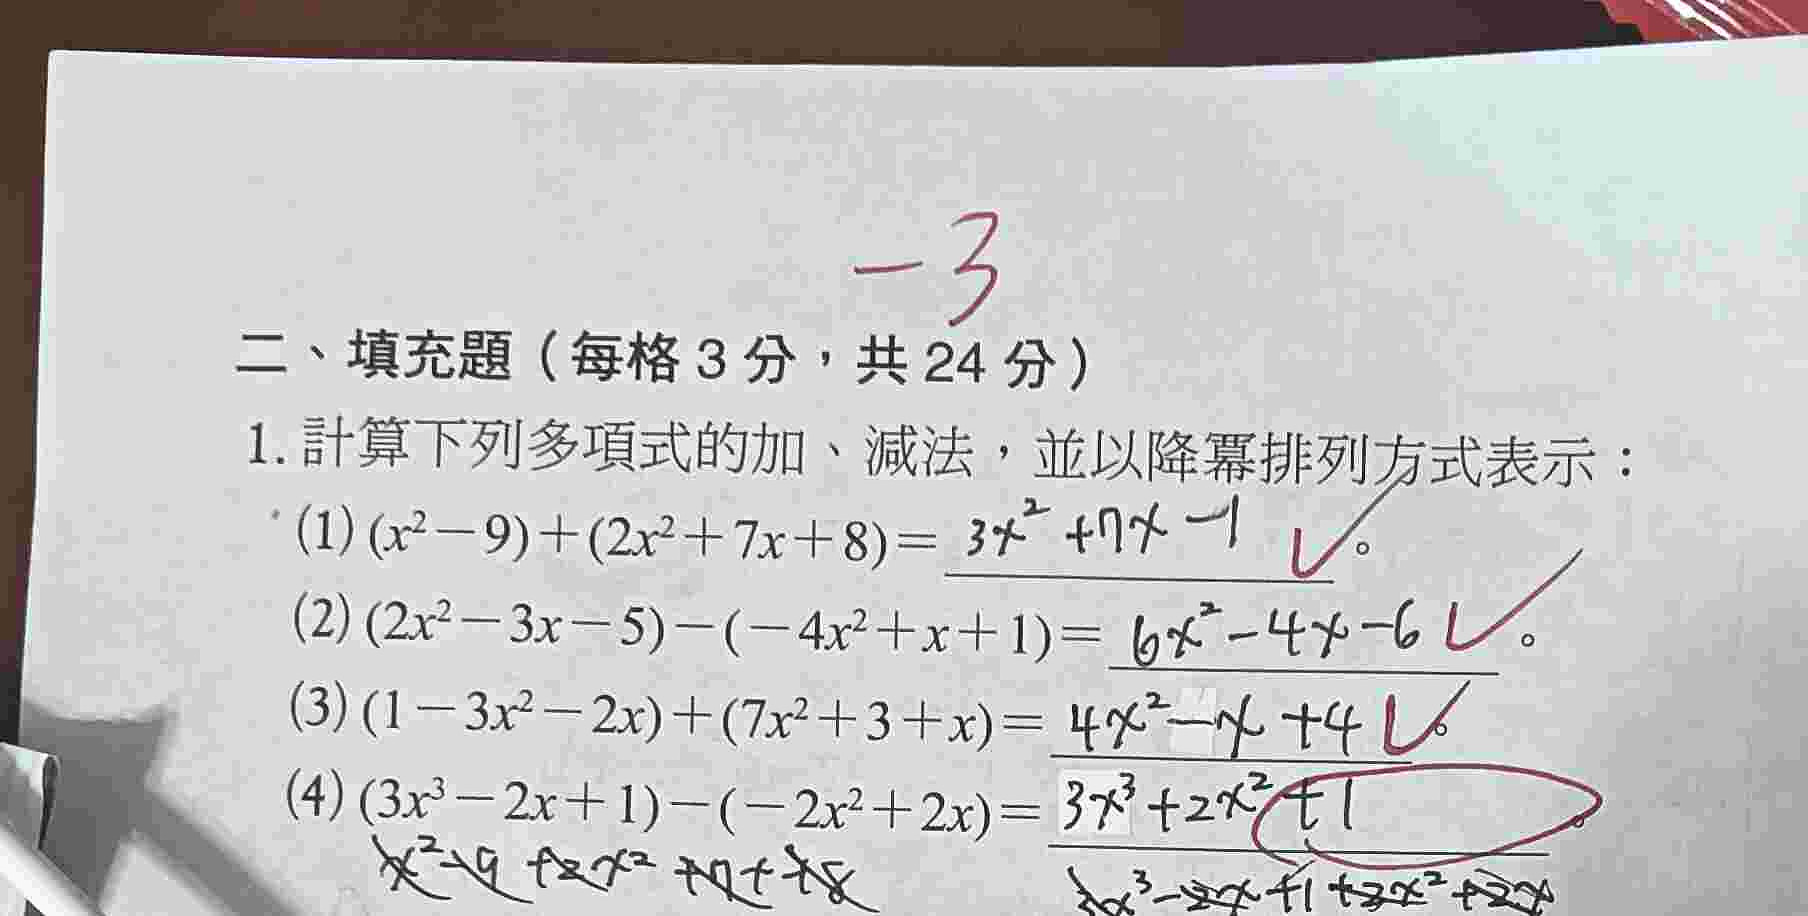 -3
二、填充題（每格3分，共24分）
1. 計算下列多項式的加、減法，並以降冪排列方式表示：
(1) (x²－9)＋(2x²＋7x＋8)＝ 3x²+7x-1 。
(2) (2x²－3x－5)－(－4x²＋x＋1)＝ 6x²-4x-6 。
(3) (1－3x²－2x)＋(7x²＋3＋x)＝ 4x²-x+4 。
(4) (3x³－2x＋1)－(－2x²＋2x)＝ 3x³+2x²+1 。
x²-9+2x²+7x+8
3x³-2x+1+2x²+2x